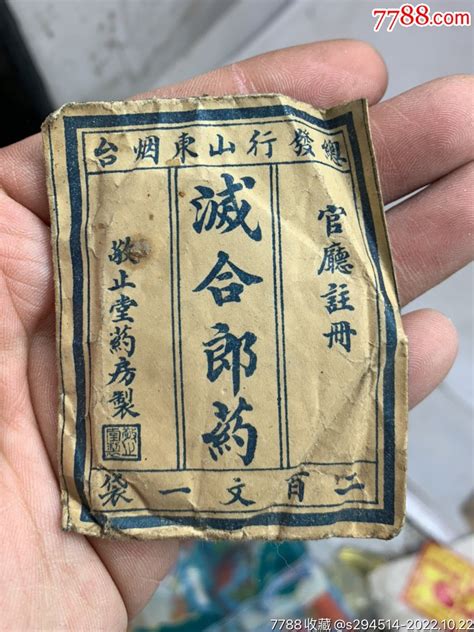 7788.com
總發行山東烟台
官廳註冊
滅合郎藥
敬止堂藥房製
二百文一袋
7788收藏 @s294514-2022.10.22